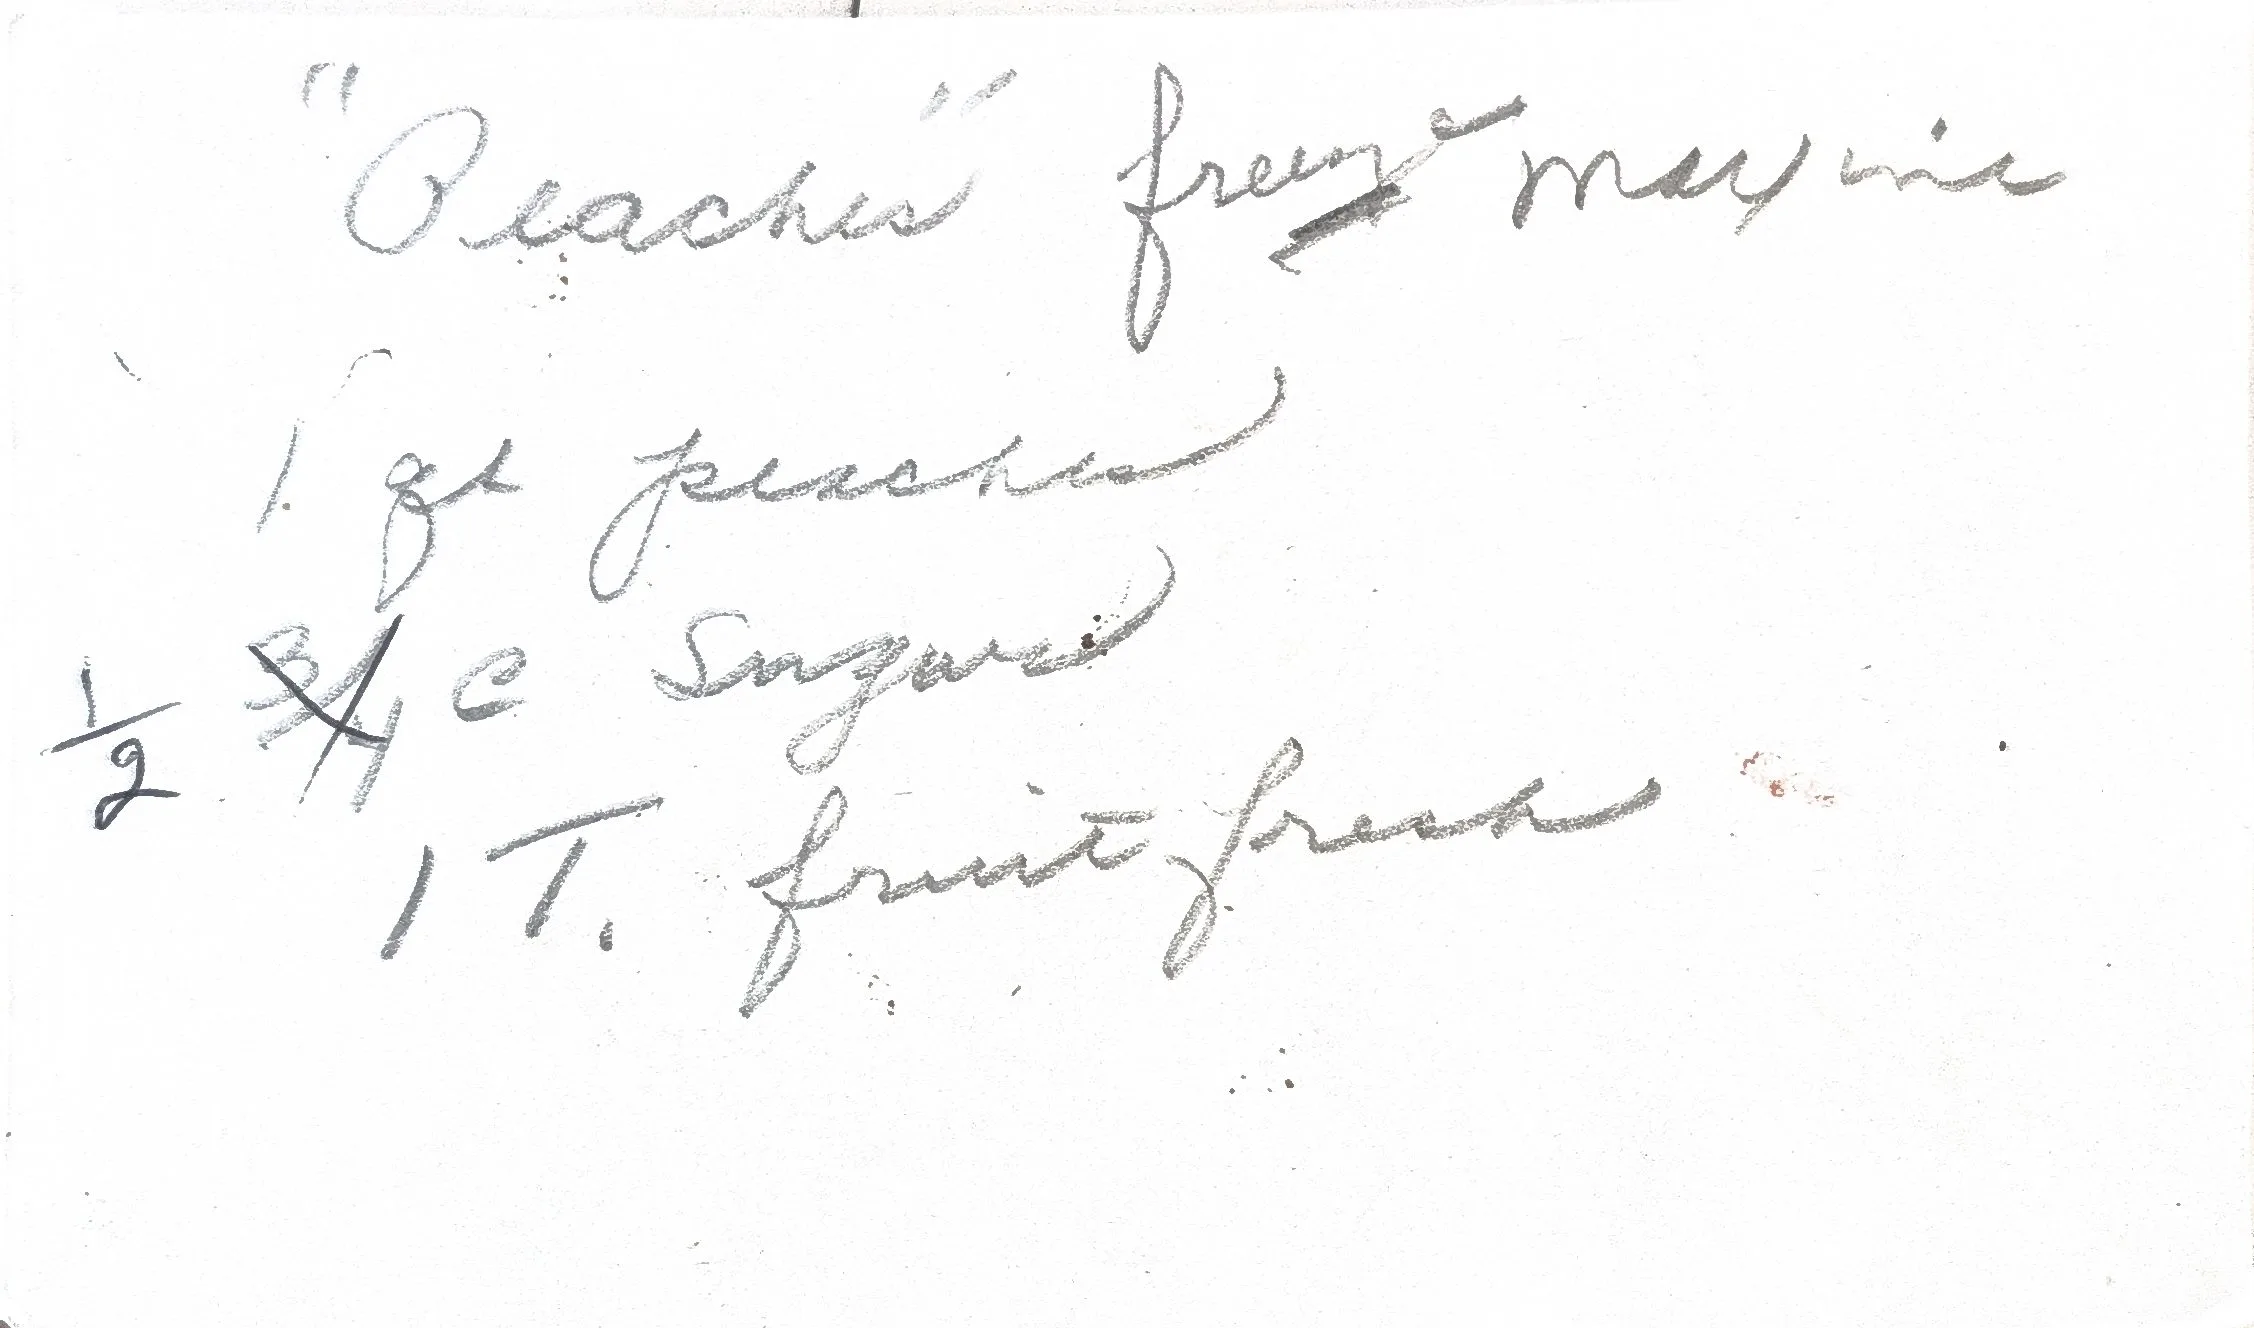 "Peaches" freeze Maxine
1 qt peaches
1/2 3/4 c Sugar
1 T. fruit-fresh